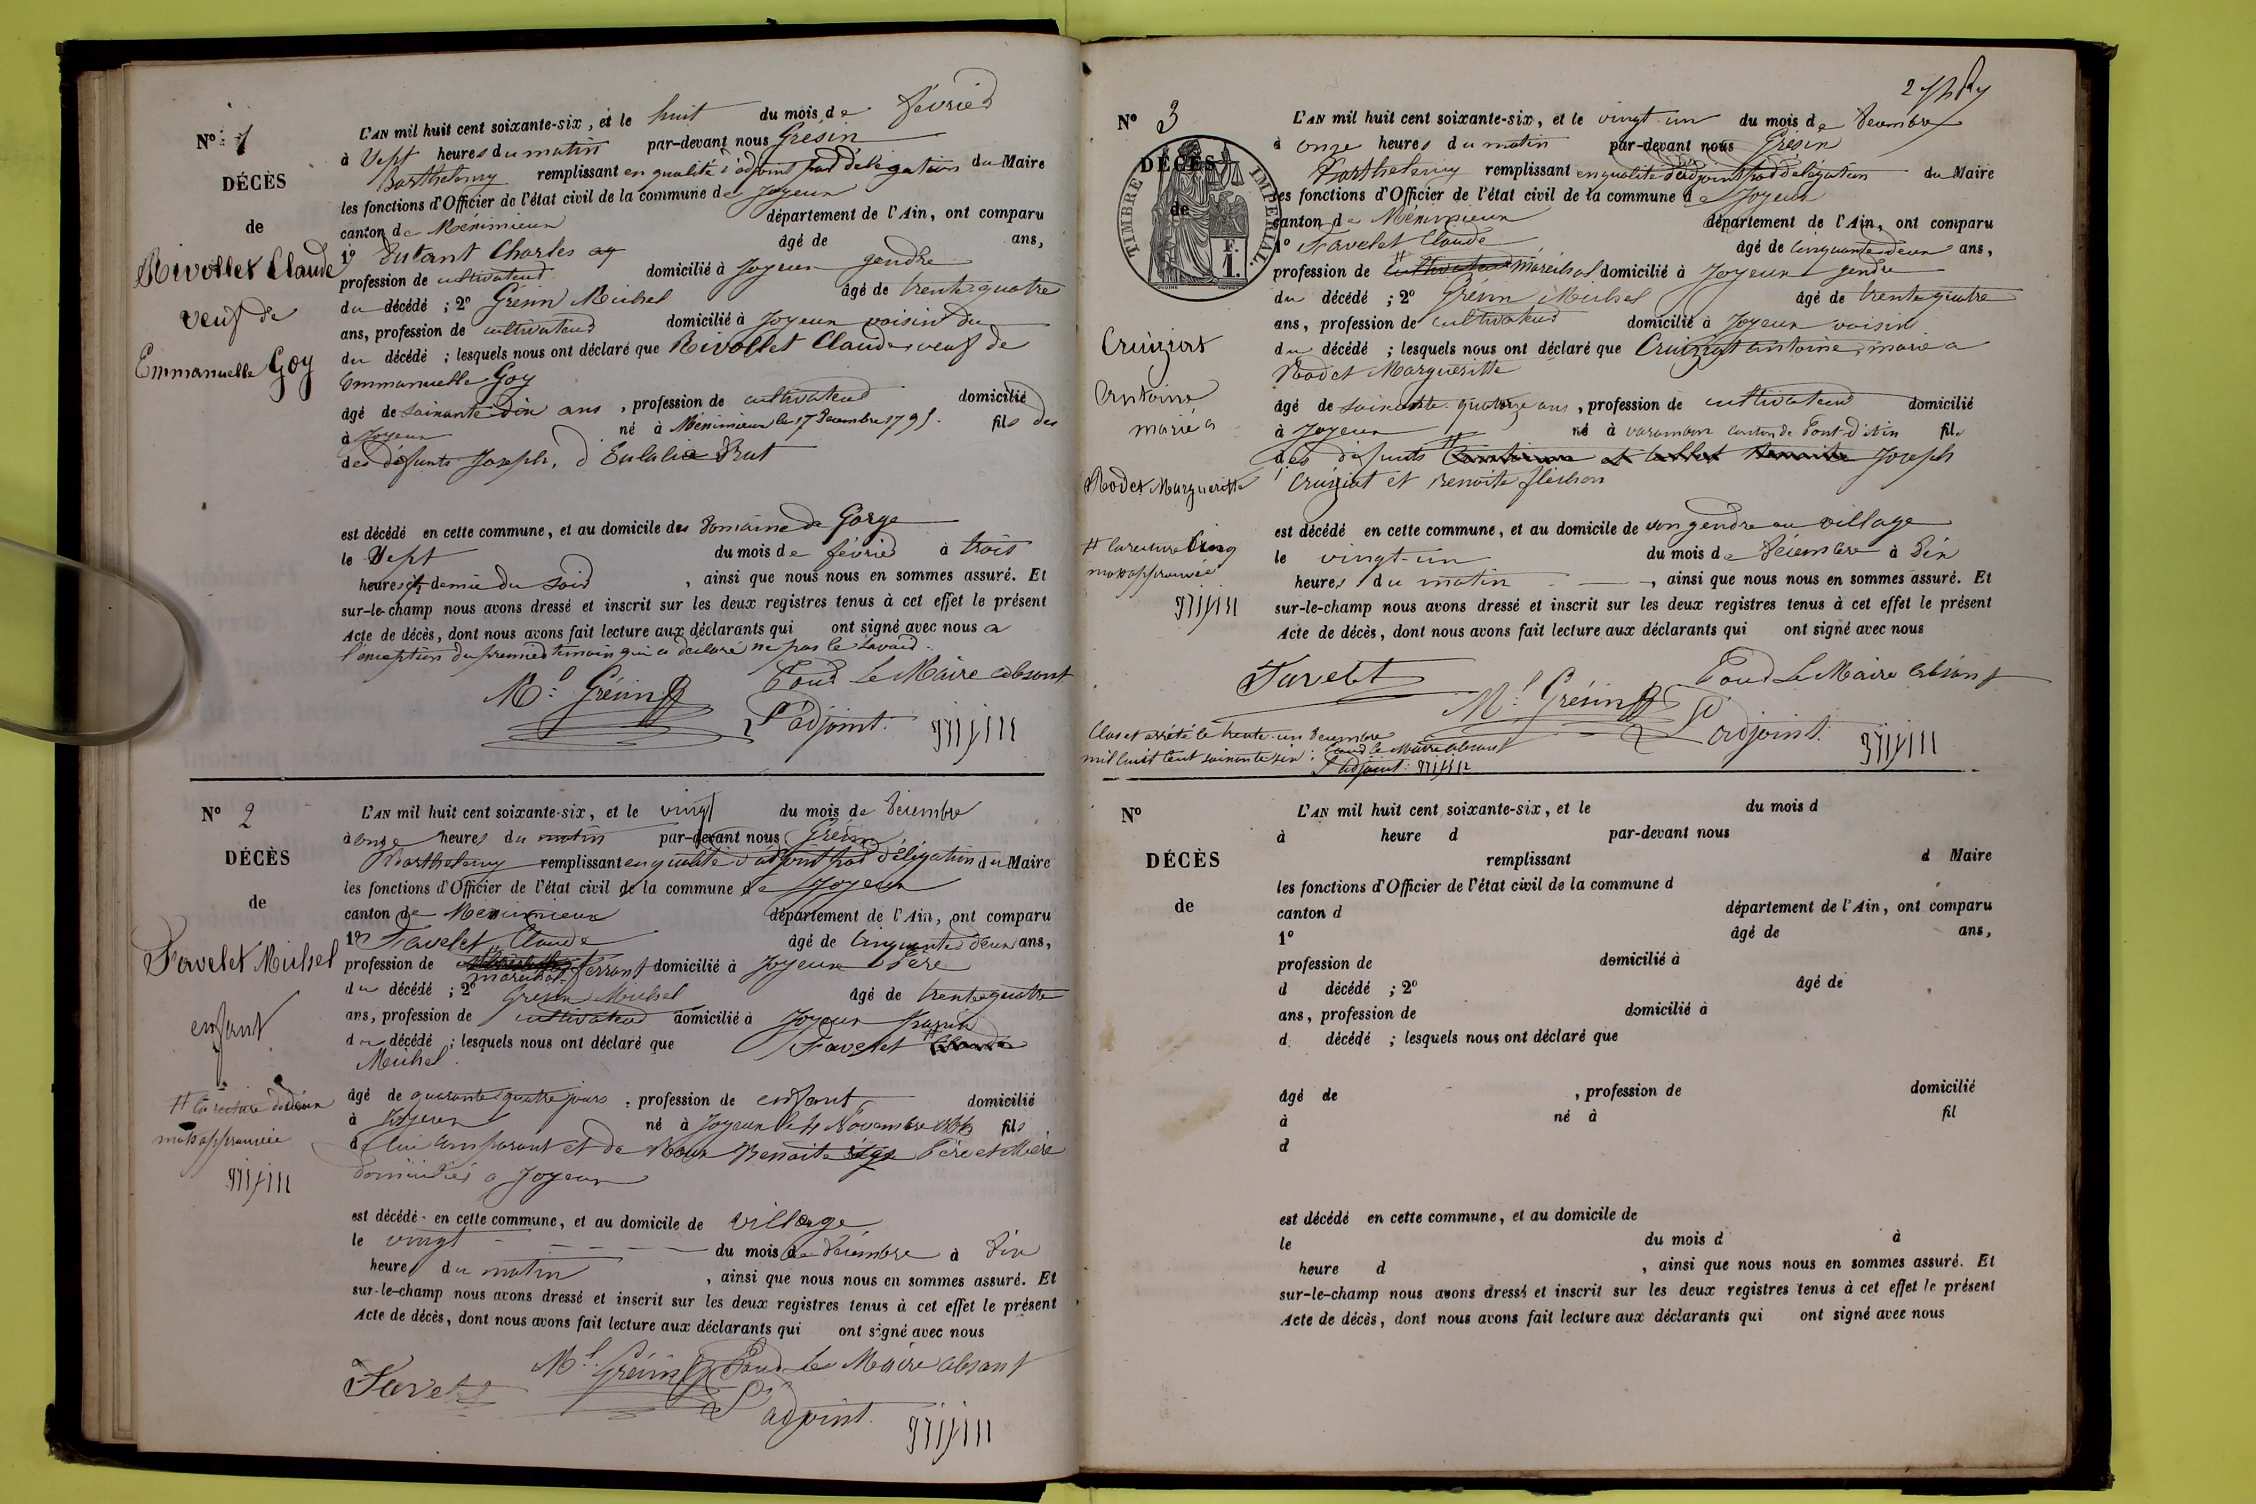 N° 1
DÉCÈS
de
Rivollet Claude
veuf de
Emmanuelle Goy
L'AN mil huit cent soixante-six, et le huit du mois de février
à Sept heures du matin par-devant nous Grésin
Barthelemy remplissant en qualité d'adjoint par délégation du Maire
les fonctions d'Officier de l'état civil de la commune de Joyeux
canton de Méximieux département de l'Ain, ont comparu
1° Dutant Charles âgé de ans,
profession de cultivateur domicilié à Joyeux gendre
du décédé ; 2° Grésin Michel âgé de trente quatre
ans, profession de cultivateur domicilié à Joyeux voisin du
du décédé ; lesquels nous ont déclaré que Rivollet Claude, veuf de
Emmanuelle Goy
âgé de soixante dix ans, profession de cultivateur domicilié
à Joyeux né à Méximieux le 17 Décembre 1795. fils des
des défunts Joseph, d'Eulalie Brut
est décédé en cette commune, et au domicile des Domaine de Gorge
le Sept du mois de février à trois
heures et demie du soir, ainsi que nous nous en sommes assuré. Et
sur-le-champ nous avons dressé et inscrit sur les deux registres tenus à cet effet le présent
Acte de décès, dont nous avons fait lecture aux déclarants qui ont signé avec nous a
l'exception du premier témoin qui a déclaré ne pas le savoir.
Ml Grésin Pour le Maire absant
L'adjoint. grésin
N° 2
DÉCÈS
de
Favelet Michel
enfant
# la rature de deux
mots approuvée
grésin
L'AN mil huit cent soixante-six, et le vingt du mois de Décembre
à onze heures du matin par-devant nous Grésin
Barthelemy remplissant en qualité d'adjoint par délégation du Maire
les fonctions d'Officier de l'état civil de la commune de Joyeux
canton de Méximieux département de l'Ain, ont comparu
1° Favelet Claude âgé de cinquante deux ans,
profession de maréchal ferrant domicilié à Joyeux Père
du décédé ; 2° Grésin Michel âgé de trente quatre
ans, profession de cultivateur domicilié à Joyeux
du décédé ; lesquels nous ont déclaré que Favelet # Claude
Michel.
âgé de quarante quatre jours, profession de enfant domicilié
à Joyeux né à Joyeux le 4 Novembre 1866 fils
de lui comparant et de Benoite Père et Mère
domiciliés a Joyeux
est décédé en cette commune, et au domicile de village
le vingt du mois de Décembre à Dix
heure du matin, ainsi que nous nous en sommes assuré. Et
sur-le-champ nous avons dressé et inscrit sur les deux registres tenus à cet effet le présent
Acte de décès, dont nous avons fait lecture aux déclarants qui ont signé avec nous
Favelet Ml. Grésin Pour le Maire absant
L'adjoint. grésin
N° 3
TIMBRE IMPÉRIAL
F.
1.
DÉCÈS
de
Cruiziat
Antoine
marié a
Rodet Margueritte
# la rature cinq
mots approuvée
grésin
L'AN mil huit cent soixante-six, et le vingt-un du mois de Décembre
à onze heures du matin par-devant nous Grésin
Barthelemy remplissant en qualité d'adjoint par délégation du Maire
les fonctions d'Officier de l'état civil de la commune de Joyeux
canton de Méximieux département de l'Ain, ont comparu
1° Favelet Claude âgé de cinquante deux ans,
profession de # cultivateur maréchal domicilié à Joyeux gendre
du décédé ; 2° Grésin Michel âgé de trente quatre
ans, profession de cultivateur domicilié à Joyeux voisin
du décédé ; lesquels nous ont déclaré que Cruiziat Antoine, marié a
Rodet Margueritte
âgé de soixante quatorze ans, profession de cultivateur domicilié
à Joyeux né à varambon canton de Pont d'Ain fils
des défunts # Joseph
Cruiziat et Benoite flechon
est décédé en cette commune, et au domicile de son gendre au village
le vingt-un du mois de Décembre à Dix
heures du matin, ainsi que nous nous en sommes assuré. Et
sur-le-champ nous avons dressé et inscrit sur les deux registres tenus à cet effet le présent
Acte de décès, dont nous avons fait lecture aux déclarants qui ont signé avec nous
Favelet Ml Grésin Pour Le Maire absant
L'adjoint. grésin
Clos et arrêté le trente-un Décembre
mil huit cent soixante six : Pour le Maire absant
L'adjoint : grésin
N°
DÉCÈS
de
L'AN mil huit cent soixante-six, et le du mois d
à heure d par-devant nous
remplissant d Maire
les fonctions d'Officier de l'état civil de la commune d
canton d département de l'Ain, ont comparu
1° âgé de ans,
profession de domicilié à
d décédé ; 2° âgé de
ans, profession de domicilié à
d décédé ; lesquels nous ont déclaré que
âgé de , profession de domicilié
à né à fil
d
est décédé en cette commune, et au domicile de
le du mois d à
heure d , ainsi que nous nous en sommes assuré. Et
sur-le-champ nous avons dressé et inscrit sur les deux registres tenus à cet effet le présent
Acte de décès, dont nous avons fait lecture aux déclarants qui ont signé avec nous